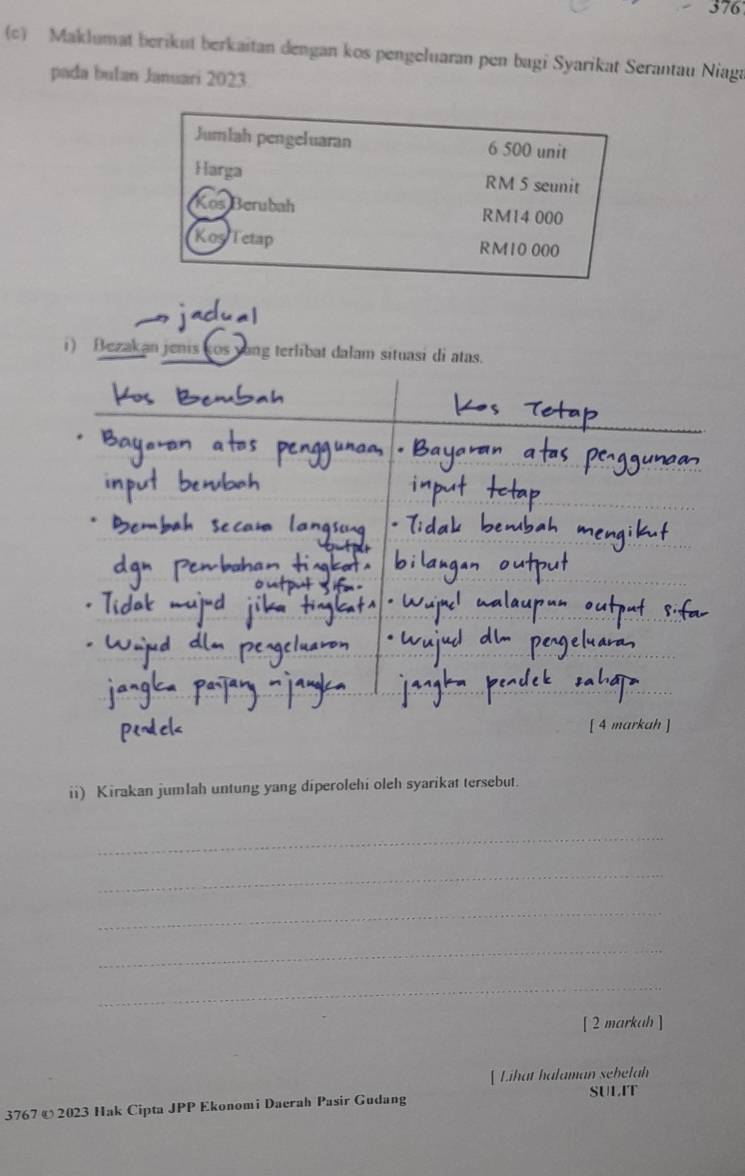 376
(c) Maklumat berikut berkaitan dengan kos pengeluaran pen bagi Syarikat Serantau Niaga
pada bulan Januari 2023
Jumlah pengeluaran 6 500 unit
Harga RM 5 seunit
Kos Berubah RM14 000
Kos Tetap RM10 000
→ jadual
i) Bezakan jenis kos yang terlibat dalam situasi di atas.
Kos Berubah Kos Tetap
• Bayaran atas penggunaan • Bayaran atas penggunaan
input berubah input tetap
• Berubah secara langsung • Tidak berubah mengikut
output
dgn perubahan tingkat ^ bilangan output
output sifar.
• Tidak wujud jika tingkat ^ • Wujud walaupun output sifar
• Wujud dlm pengeluaran • Wujud dlm pengeluaran
jangka panjang n jangka jangka pendek sahaja
pendek
[ 4 markah ]
ii) Kirakan jumlah untung yang diperolehi oleh syarikat tersebut.
[ 2 markah ]
[ Lihat halaman sebelah
SULIT
3767 © 2023 Hak Cipta JPP Ekonomi Daerah Pasir Gudang